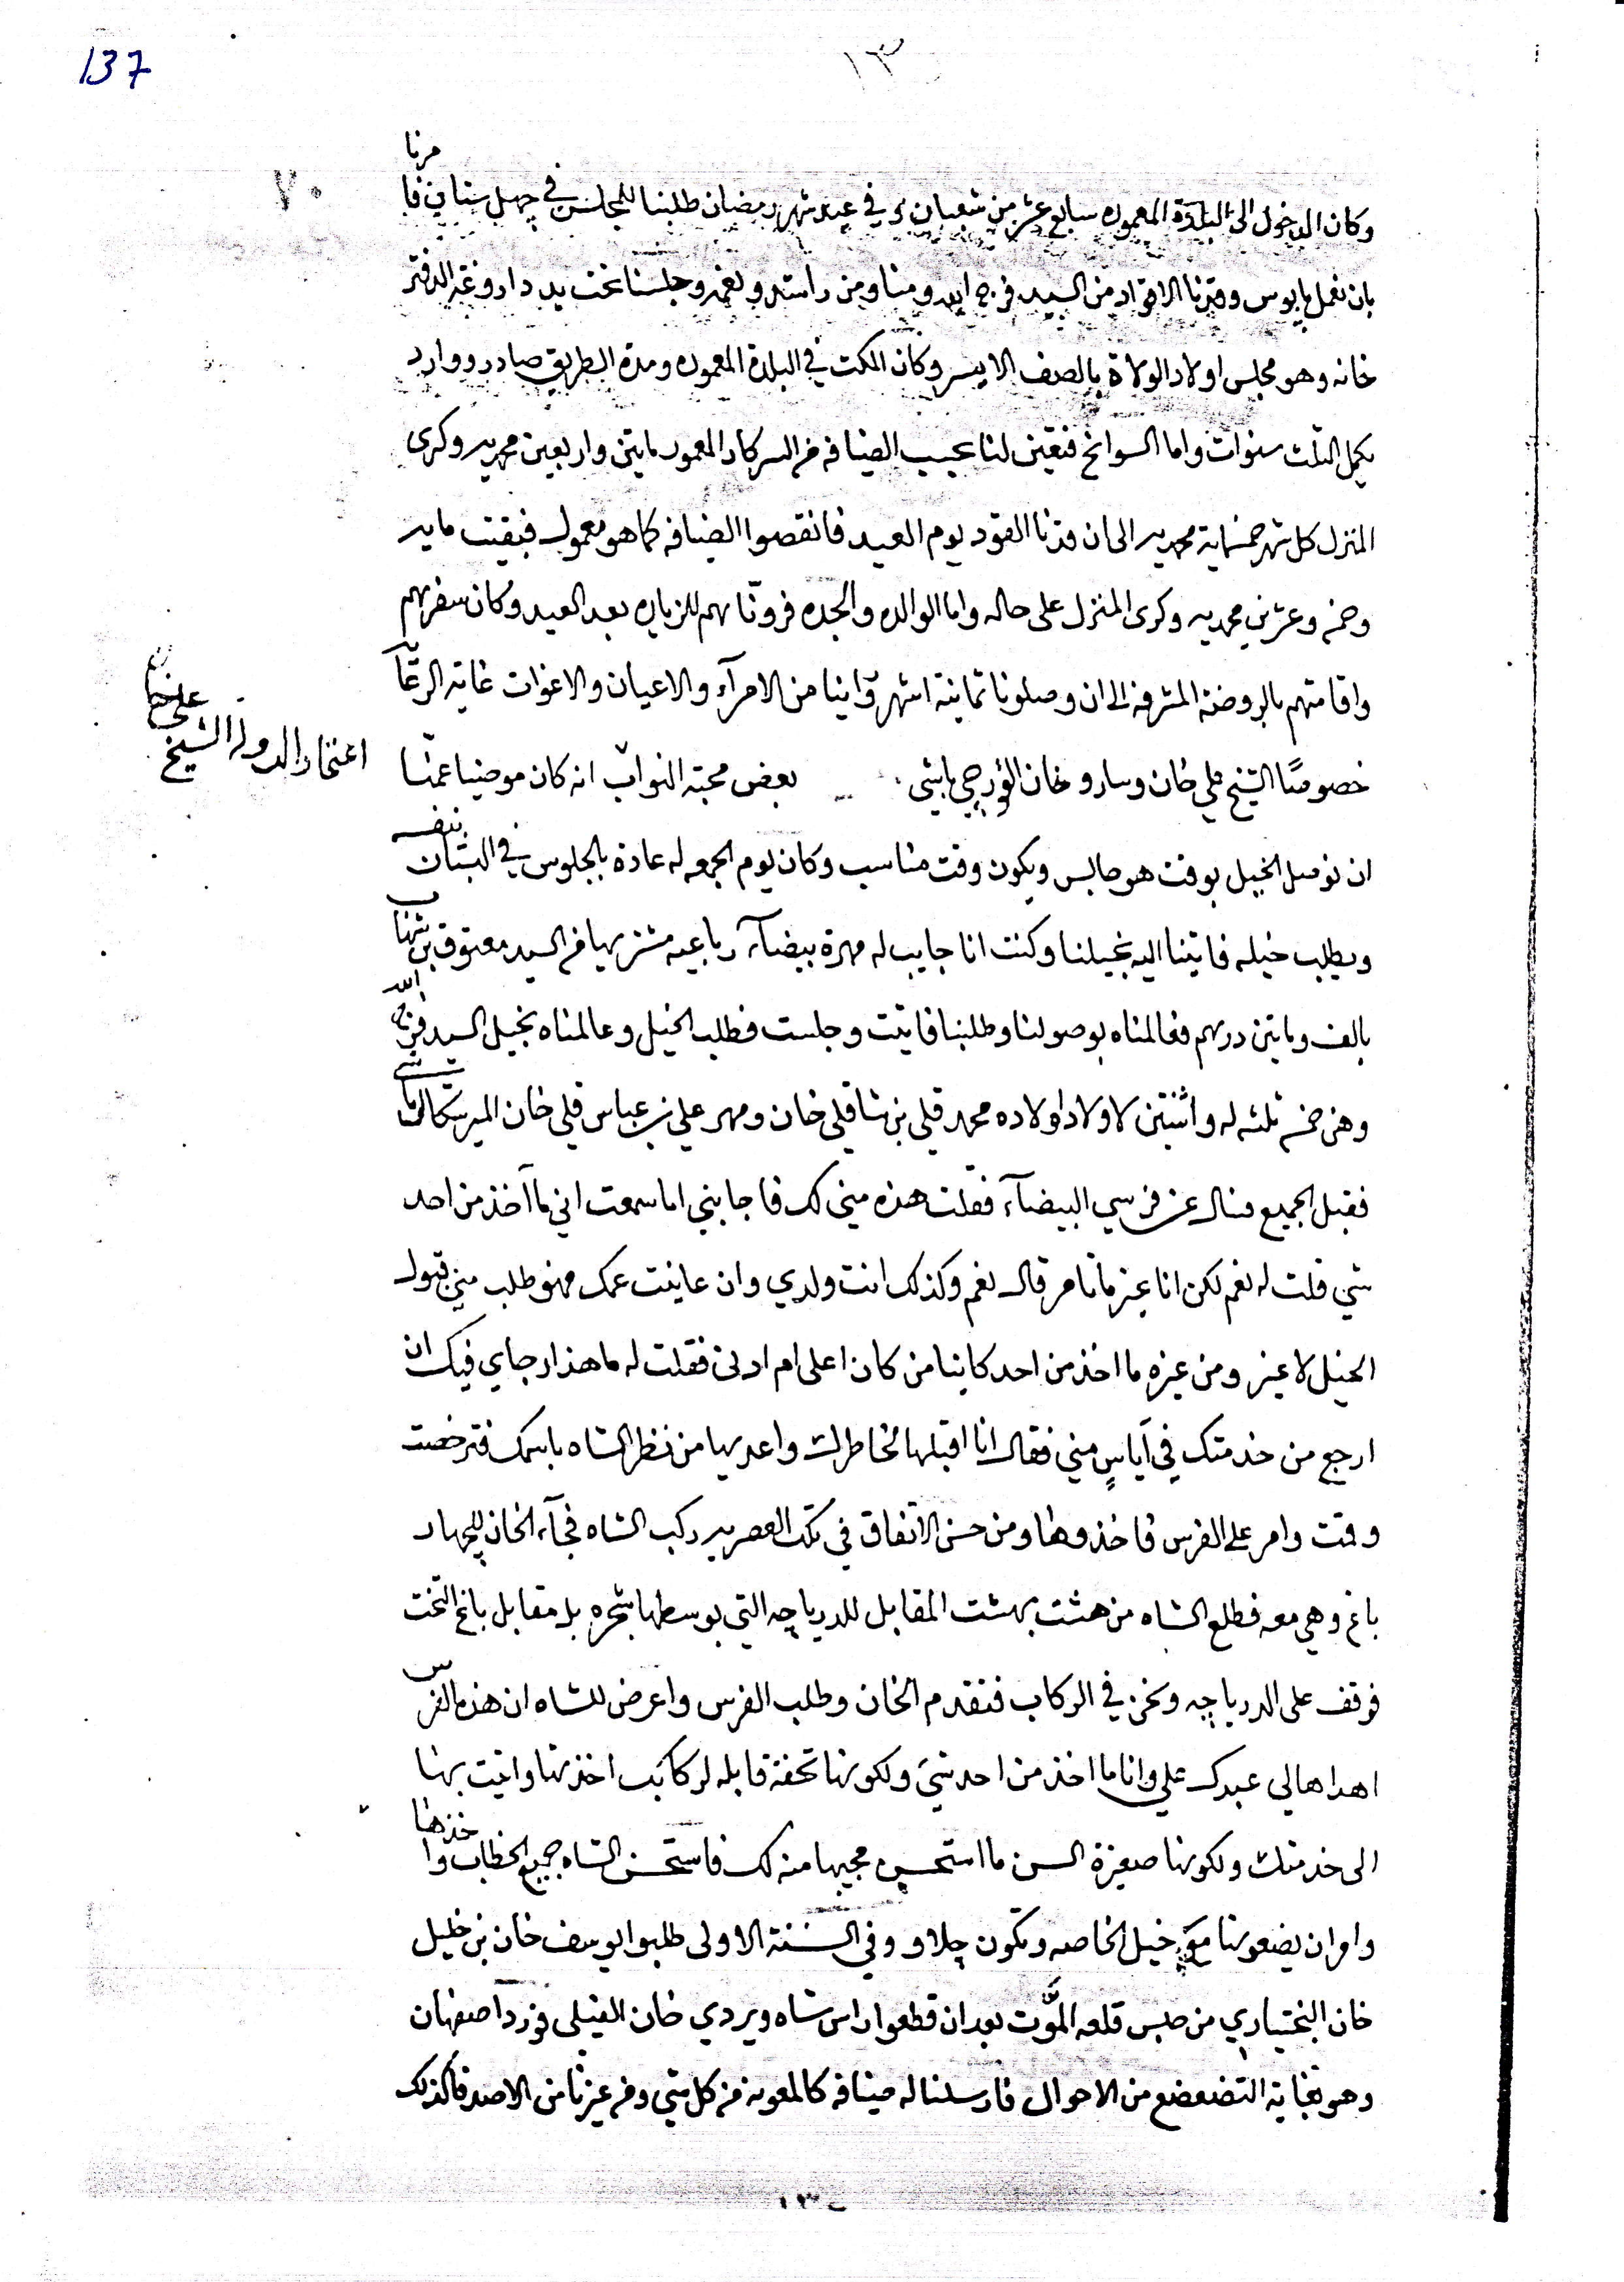 137
١٣
٧٠
وكان الدخول الى البلدة المعموره سابع عشر من شعبان وفي عيد شهر رمضان طلبنا للمجلس في چهل ستاين فا مرنا
بان نعمل پايبوس وقدنا الاقواد من السيد فرج الله ومنا ومن راشد ونعمه وجلسنا تحت يد داروغة الدفتر
خانه وهو مجلس اولاد الولاة بالصف الايسر وكان المكث في البلدة المعموره ومدة الطريق صادر ووارد
يكمل الثلث سنوات واما السوانح فتعين لنا بحسب الضيافه من السركار المعمور مايتين واربعين محمديه وكرى
المنزل كل شهر خمسماية محمديه الى ان قدنا القود يوم العيد فانقصوا الضيافه كما هو معمول فبقيت مايه
وخمسه وعشرين محمديه وكرى المنزل على حاله واما الوالده والجده فروّناهم للزياره بعد العيد وكان سفرهم
واقامتهم بالروضة المشرفه الى ان وصلونا ثمانية اشهر وراينا من الامرآء والاعيان والاغوات غاية الرعاَ
خصوصًا الشيخ علي خان وسارو خان القورچي باشي بعض محبة النواب انه كان موصينا عمنا
اعتماد الدوله الشيخ علي خان
ان نوصل الخيل بوقت هو جالس ويكون وقت مناسب وكان يوم الجمعه له عادة بالجلوس في البستان بنفسه
ويطلب خيله فاتينا اليه بخيلنا وكنت انا جايب له مهرة بيضآء رباعيه مشتريها من السيد معتوق بن شهاب
بالف ومايتين درهم فعالمناه بوصولنا وطلبنا فاتيت وجلست فطلب الخيل وعالمناه بخيل السيد فرج الله
وهن خمسه ثلثه له واثنتين لاولاد اولاده محمد قلي بن شاقلي خان ومهر علي بن عباس قلي خان الميرشكار باشي
فقبل الجميع وسال عن فرسي البيضآء فقلت هذه مني لك فاجابني اما سمعت اني ما آخذ من احد
شي قلت له نعم لكن انا غير ما تامر قال نعم وكذلك انت ولدي وان عاينت عمك فهو طلب مني قبول
الخيل لا غير ومن غيره ما اخذ من احد كاينا من كان اعلى ام ادنى فقلت له ما هذا رجاي فيك ان
ارجع من خدمتك في اَياسٍ مني فقال انا اقبلها لخاطرك واعديها من نظر الشاه باسمك فترخصت
وقمت وامر على الفرس فاخذوها ومن حسن الاتفاق في تلك العصريه ركب الشاه فجآء الخان للچهار
باغ وهي معه فطلع الشاه من هشت بهشت المقابل للدرياچه التي بوسطها شجره بل مقابل باغ التخت
فوقف على الدرياچه ونحن في الركاب فتقدم الخان وطلب الفرس واعرض للشاه ان هذه الفرس
اهداها لي عبدك علي وانا ما اخذ من احد شي ولكونها تحفة قابله لركابك اخذتها واتيت بها
الى خدمتك ولكونها صغيرة السن ما استحسن مجيبها منه لك فاستحسن الشاه جميع الخطاب واخذها
وامر ان يضعونها مع خيل الخاصه وتكون چلاو وفي السنة الاولى طلبوا يوسف خان بن خليل
خان البختياري من حبس قلعه المُّوت بعد ان قطعوا راس شاه ويردي خان الفيلي فورد اصفهان
وهو بغاية التضعضع من الاحوال فارسلنا له ضيافه كالمعونه من كل شي ومن غيرنا من الاصدقا كذلك